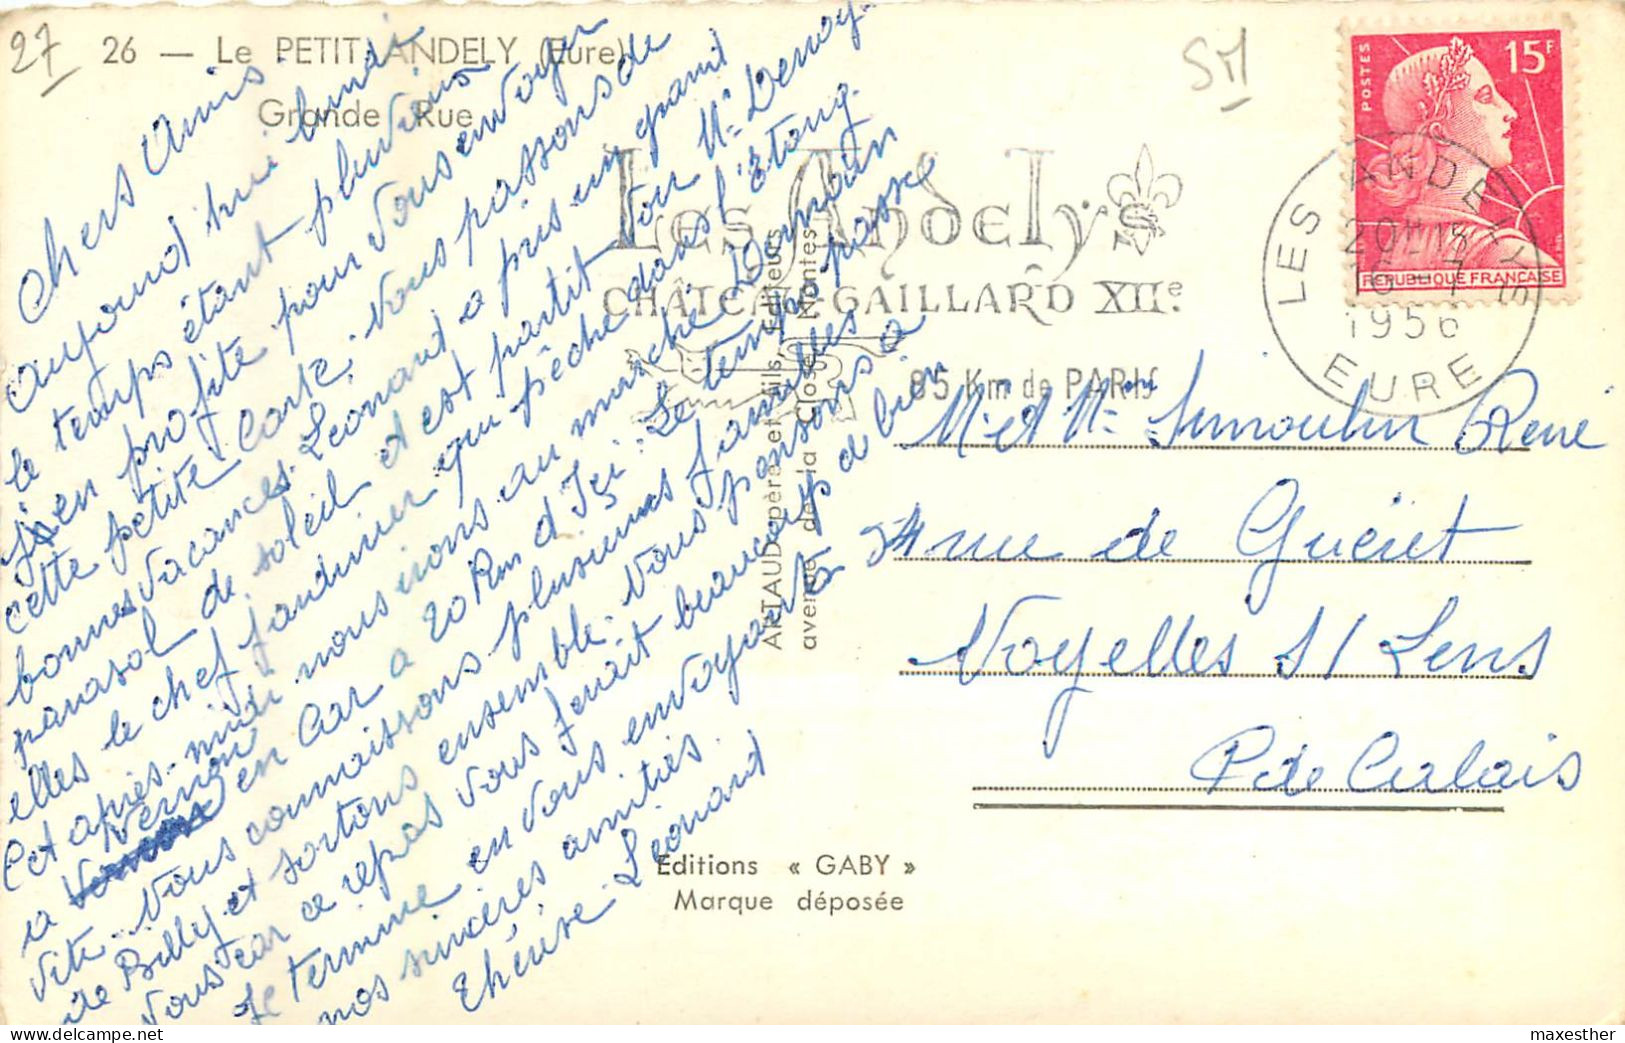 27
26 — Le PETIT-ANDELY (Eure)
Grande Rue
SM
POSTES
15F
REPUBLIQUE FRANÇAISE
LES ANDELYS
20H 15
16 - 7
1956
EURE
Les Andelys
CHÂTEAU-GAILLARD XIIe
85 Km de PARIS
Chers Amis.
Aujourd'hui lundi
le temps étant pluvieux
j'en profite pour vous envoyer
cette petite carte. Nous passons de
bonnes vacances. Léonard a pris un grand
parasol de soleil et est partit voir Mr Denoy.
elles le chef jardinier qui pêche dans l'Etang.
Cet après-midi nous irons au marché Normand
a Vernon en car a 20 Km d'Içi. Le temps passe
vite. Nous connaissons plusieurs familles
de Billy et sortons ensemble. Nous pensons a
vous car ce repos vous ferait beaucoup de bien
Je termine en vous envoyant
nos sincères amitiés.
Thérèse Léonard
ARTAUD père et fils, Editeurs
avenue de la Close Nantes
Mr et Mme Dumoulin René
rue de Guéret
Noyelles S/ Lens
P de Calais
Editions « GABY »
Marque déposée
delcampe.net
maxesther